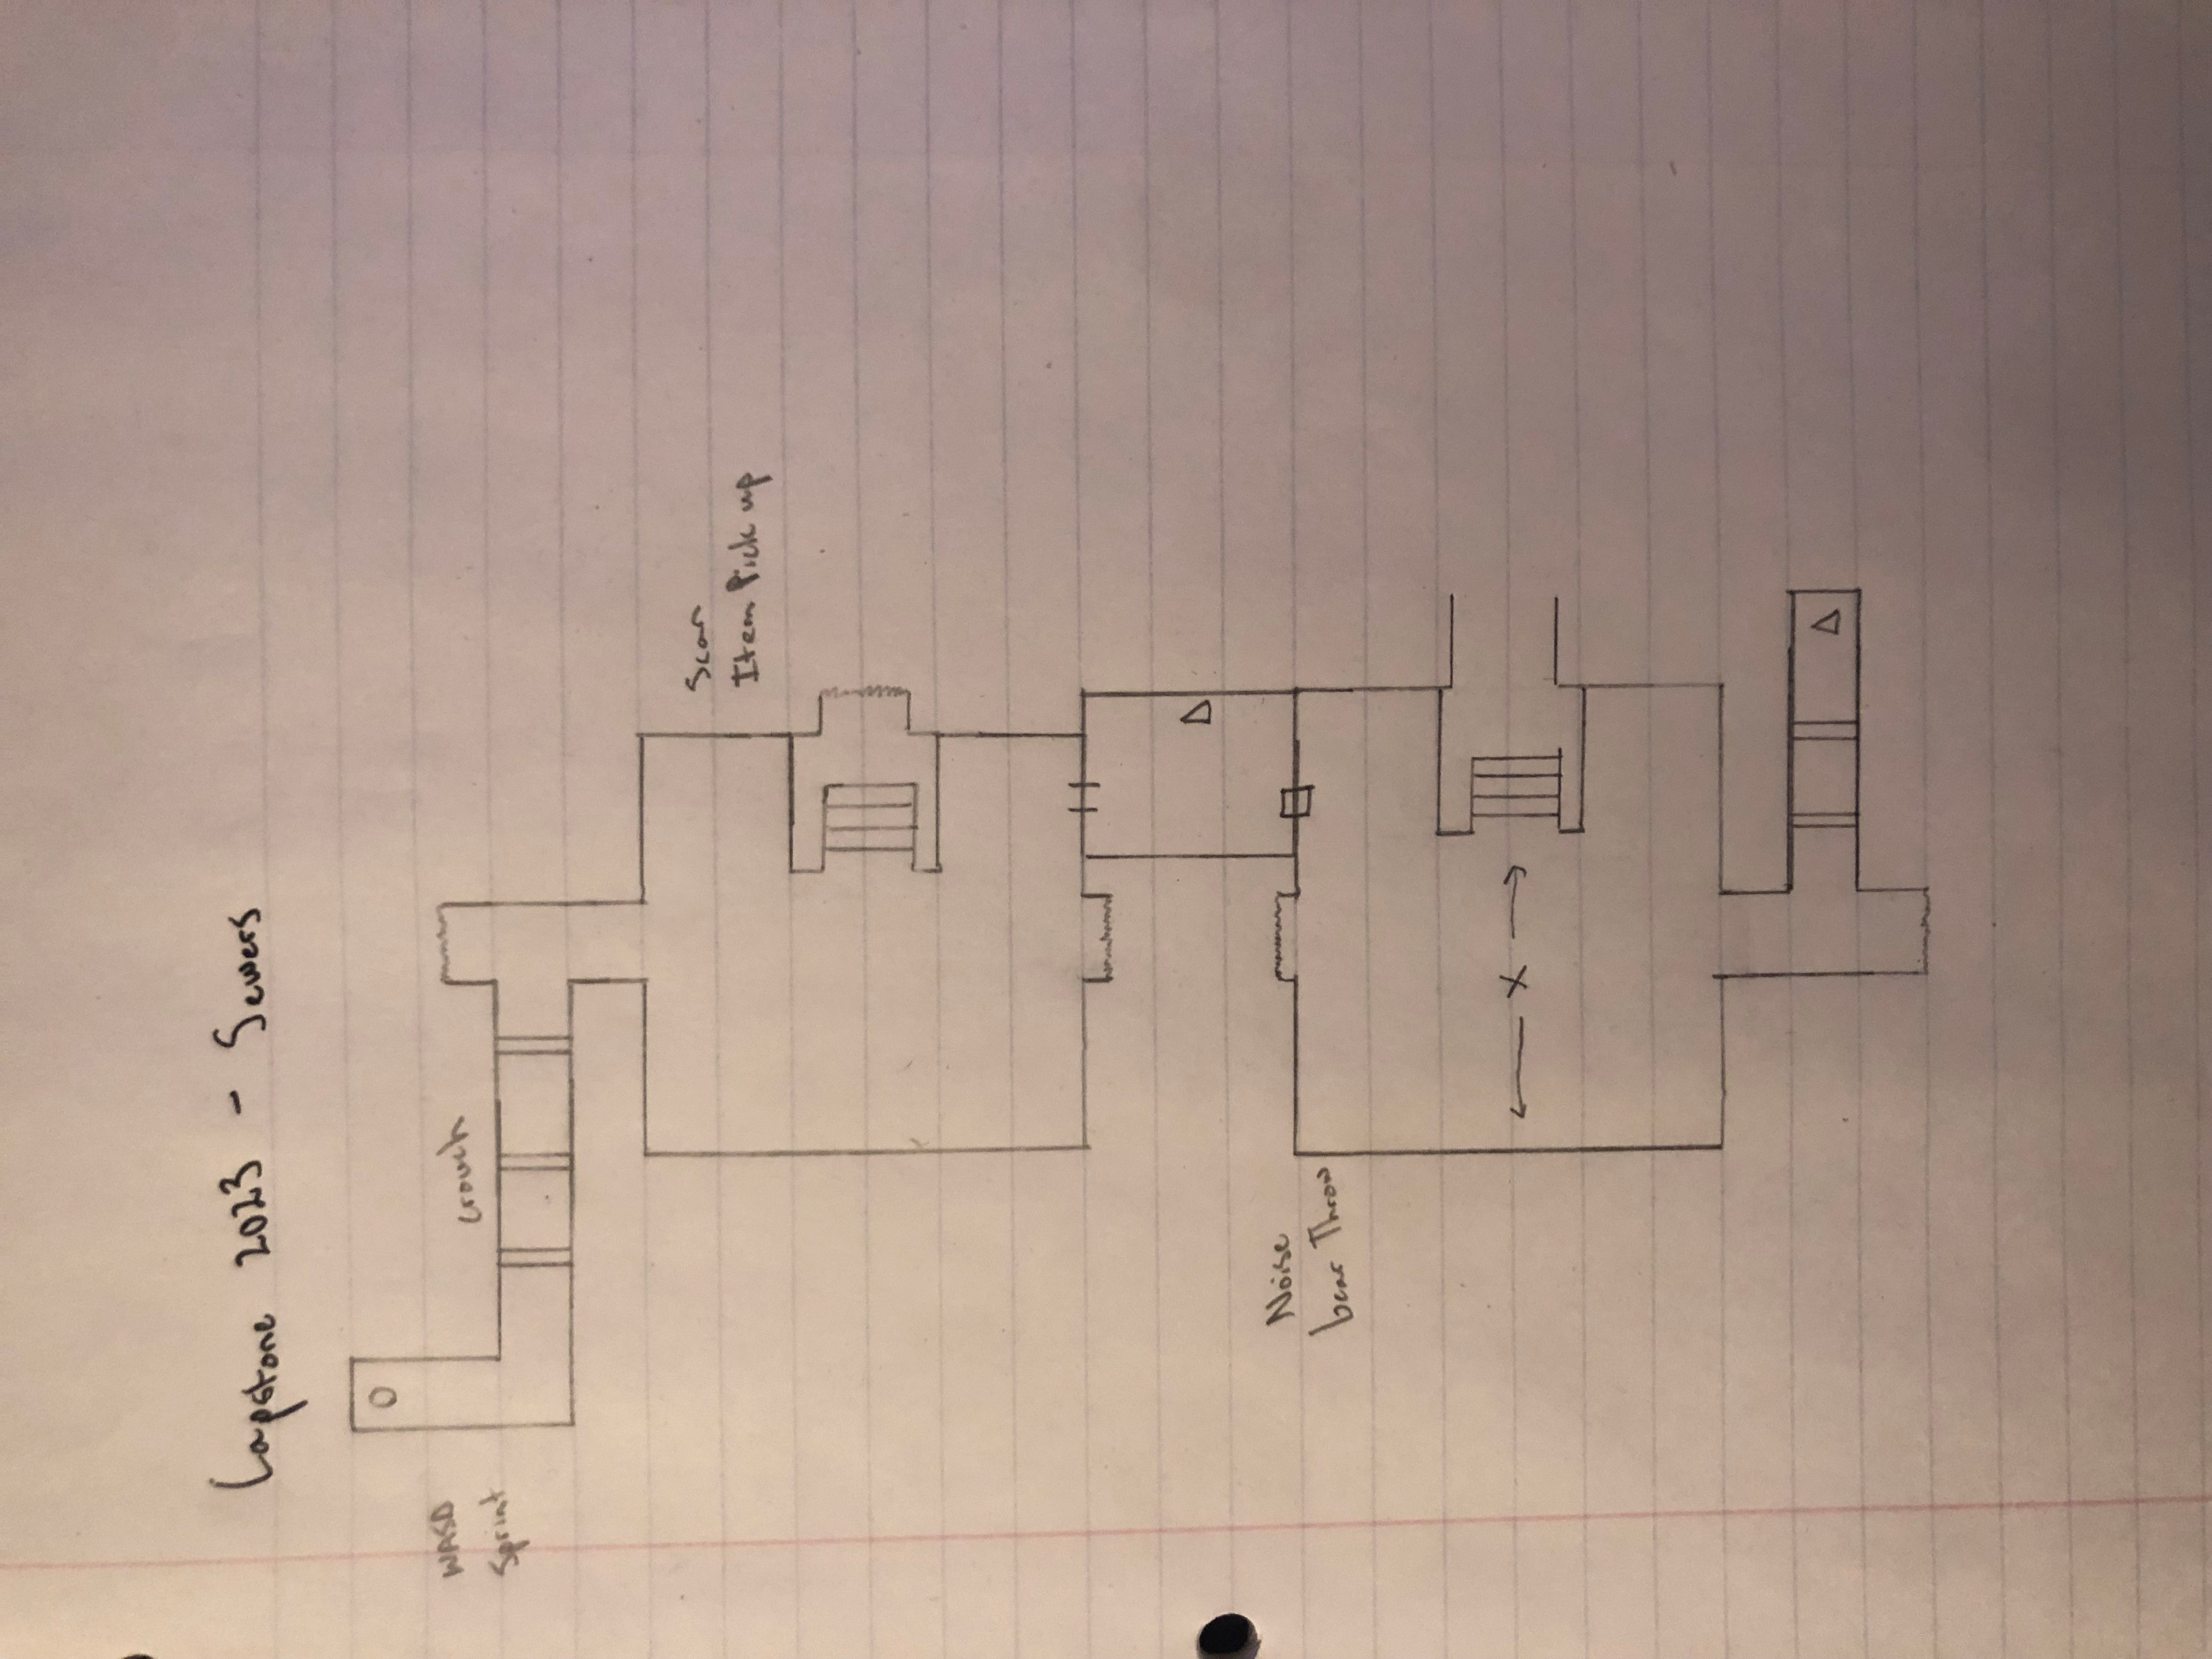 Capstone 2023 - Sewers
WASD
Sprint
crouch
Scan
Item Pick up
Noise
bear Throw
X